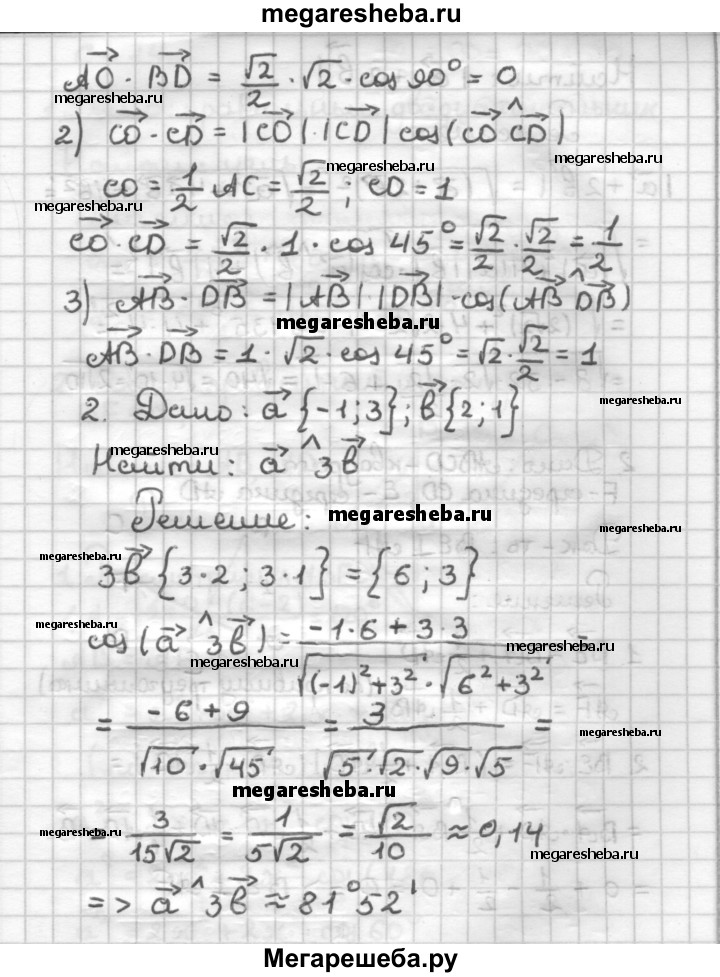 megaresheba.ru
AO · BD = √2/2 · √2 · cos90° = 0
megaresheba.ru
megaresheba.ru
2) CO · CD = |CO| · |CD| cos(CO ^ CD)
megaresheba.ru
megaresheba.ru
CO = 1/2 AC = √2/2 ; CD = 1
megaresheba.ru
CO · CD = √2/2 · 1 · cos 45° = √2/2 · √2/2 = 1/2
megaresheba.ru
3) AB · DB = |AB| · |DB| · cos(AB ^ DB)
megaresheba.ru
AB · DB = 1 · √2 · cos 45° = √2 · √2/2 = 1
2. Дано: a {-1; 3}; b {2; 1}
megaresheba.ru
Найти: a ^ 3b
megaresheba.ru
Решение:
megaresheba.ru
megaresheba.ru
megaresheba.ru
3b {3·2; 3·1} = {6; 3}
megaresheba.ru
cos(a ^ 3b) = (-1·6 + 3·3) / (√((-1)²+3²) · √(6²+3²)) =
megaresheba.ru
megaresheba.ru
= (-6+9) / (√10 · √45) = 3 / (√5 · √2 · √9 · √5) =
megaresheba.ru
= 3/(15√2) = 1/(5√2) = √2/10 ≈ 0,14
megaresheba.ru
megaresheba.ru
=> a ^ 3b ≈ 81°52'
Мегарешеба.ру